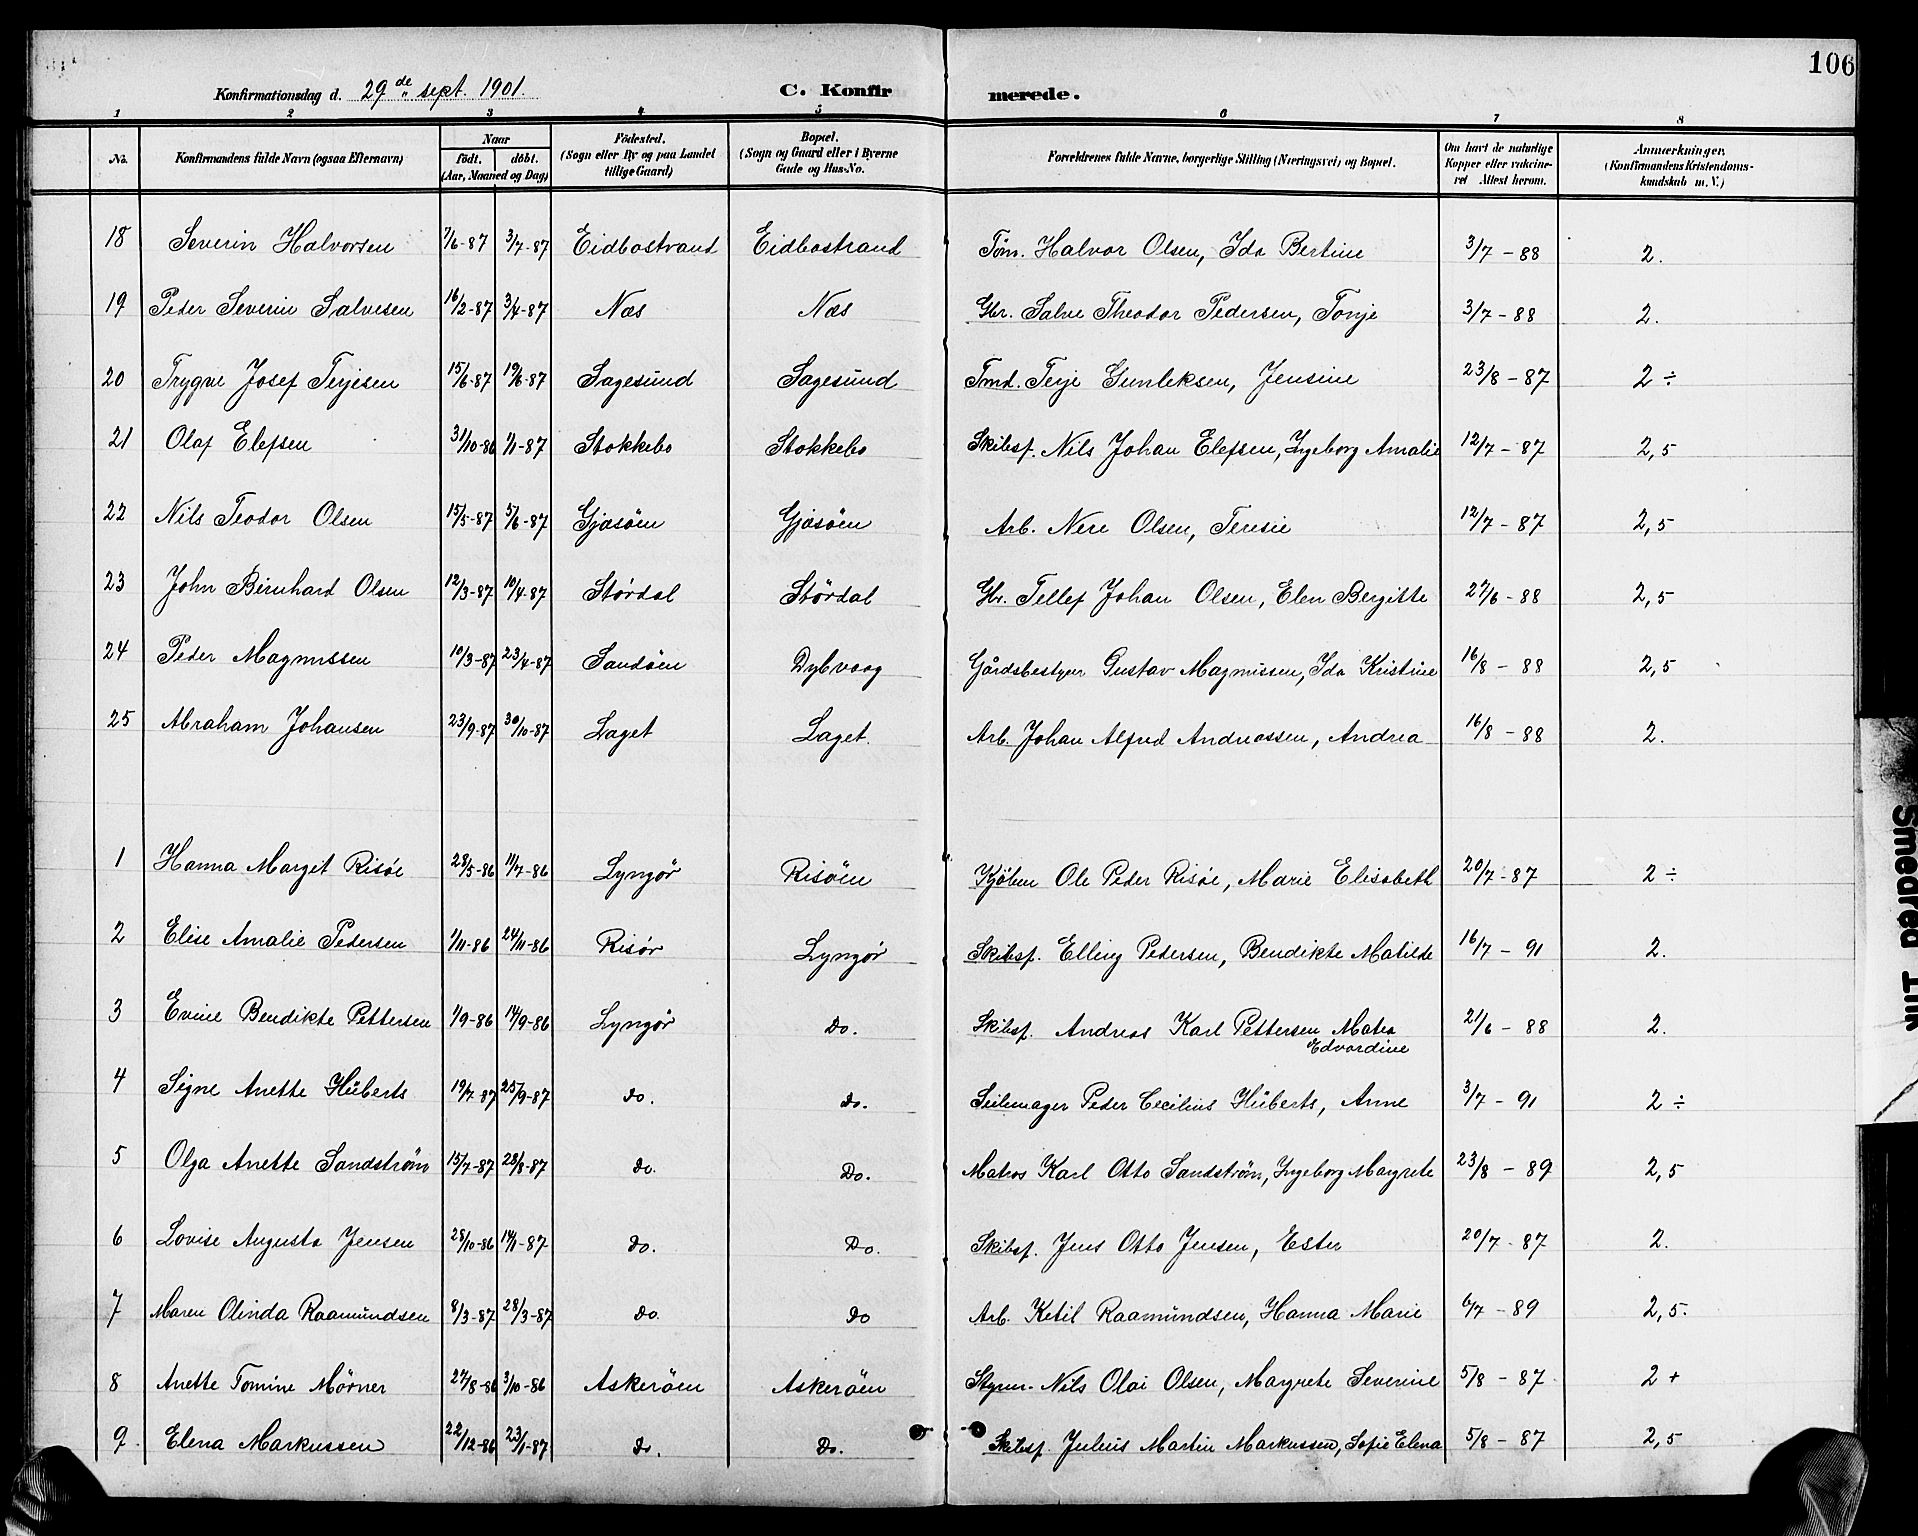 106
Konfirmationsdag d. 29de sept. 1901. C. Konfirmerede.
1 2 3 4 5 6 7 8
No. Konfirmandens fulde Navn (ogsaa Efternavn) Naar født. døbt. (Aar, Maaned og Dag) Födested. (Sogn eller By og paa Landet tillige Gaard) Bopæl. (Sogn og Gaard eller i Byerne Gade og Hus-No. Forældrenes fulde Navne, borgerlige Stilling (Næringsvei) og Bopæl. Om havt de naturlige Kopper eller vakcineret Attest herom. Anmærkninger. (Konfirmandens Kristendomskundskab m. V.)
18 Severin Halvorsen 7/6-87 3/7-87 Eidbostrand Eidbostrand Tøm. Halvor Olsen, Ida Bertine 3/7-88 2.
19 Peder Severin Salvesen 16/2-87 3/4-87 Næs Næs Gbr. Salve Theodor Pedersen, Tonje 3/7-88 2.
20 Trygve Josef Terjesen 15/6-87 19/6-87 Sagesund Sagesund Tmd. Terje Gunleksen, Jensine 23/8-87 2 ÷
21 Olaf Elefsen 31/10-86 1/1-87 Stokkebo Stokkebo Skibsf. Nils Johan Elefsen, Ingeborg Amalie 12/7-87 2,5
22 Nils Teodor Olsen 15/5-87 5/6-87 Gjæsöen Gjæsöen Arb. Nere Olsen, Teresie 12/7-87 2,5
23 John Bernhard Olsen 12/3-87 10/4-87 Stördal Stördal Gbr. Tellef Johan Olsen, Elen Bergitte 27/6-88 2,5
24 Peder Magnussen 10/3-87 23/4-87 Sandöen Dybvaag Gårdsbestyrer Gustav Magnussen, Ida Kristine 16/8-88 2,5
25 Abraham Johansen 23/9-87 30/10-87 Laget Laget. Arb. Johan Alfred Andreassen, Andrea 16/8-88 2.
1 Hanna Margit Risöe 28/5-86 11/7-86 Lyngör Risöen Kjöbm Ole Peder Risöe, Marie Elisabeth 20/7-87 2 ÷
2 Elise Amalie Pedersen 1/11-86 24/11-86 Risör Lyngör Skibsf. Elling Pedersen, Bendikte Matilde 16/7-91 2.
3 Evine Bendikte Pettersen 1/9-86 14/9-86 Lyngör Do. Skibsf. Andreas Karl Pettersen Matea Edvardine 21/6-88 2.
4 Signe Anette Hüberts 19/7-87 25/9-87 do. do. Seilmager Peder Cecilius Hüberts, Anne 3/7-91 2 ÷
5 Olga Anette Sandström 15/7-87 28/8-87 do. Do. Matros Karl Otto Sandström, Ingeborg Margrete 23/8-89 2,5
6 Lovise Augusta Jensen 28/10-86 14/1-87 do. Do. Skibsf. Jens Otto Jensen, Ester 20/7-87 2.
7 Maren Olinda Raamundsen 8/3-87 28/3-87 do. do Arb. Ketil Raamundsen, Hanna Marie 6/7-89 2,5.
8 Anette Tomine Mörner 27/8-86 3/10-86 Askeröen Askeröen Styrm. Nils Olai Olsen, Margrete Severine 5/8-87 2 +
9. Elena Markussen 22/12-86 23/1-87 do. Do. Skibsf. Julius Martin Markussen, Sofie Elena 5/8-87 2,5
Smedred Ink